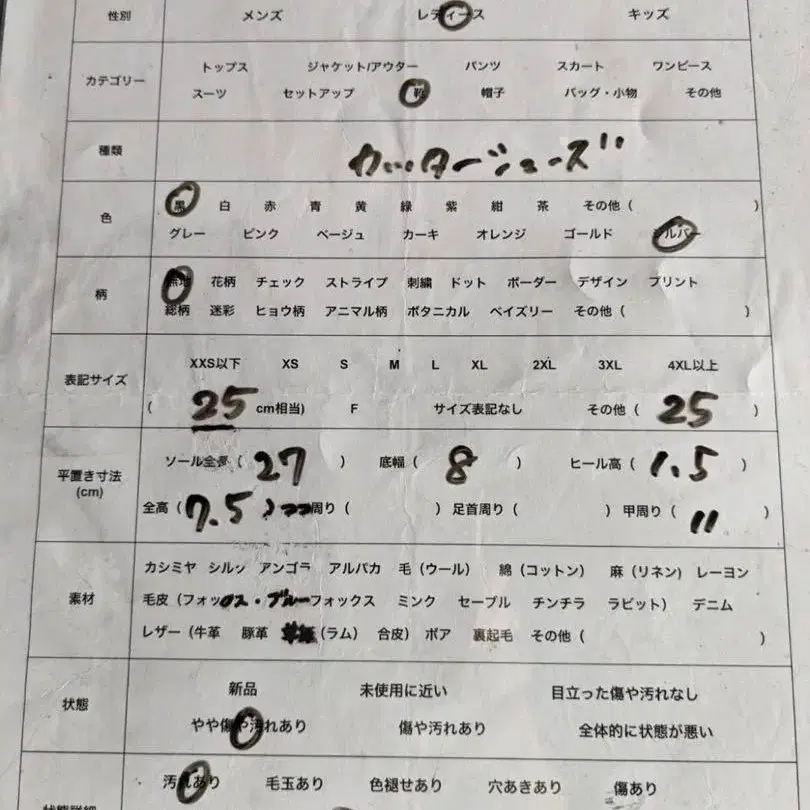 性別 メンズ レディース キッズ
カテゴリー
トップス ジャケット/アウター パンツ スカート ワンピース
スーツ セットアップ 靴 帽子 バッグ・小物 その他
種類 カッターシューズ
色
黒 白 赤 青 黄 緑 紫 紺 茶 その他 ( )
グレー ピンク ベージュ カーキ オレンジ ゴールド シルバー
柄
無地 花柄 チェック ストライプ 刺繍 ドット ボーダー デザイン プリント
総柄 迷彩 ヒョウ柄 アニマル柄 ボタニカル ペイズリー その他 ( )
表記サイズ
XXS以下 XS S M L XL 2XL 3XL 4XL以上
( 25 cm相当) F サイズ表記なし その他 ( 25 )
平置き寸法
(cm)
ソール全長 ( 27 ) 底幅 ( 8 ) ヒール高 ( 1.5 )
全高 ( 7.5 ) 周り ( ) 足首周り ( ) 甲周り ( 11 )
素材
カシミヤ シルク アンゴラ アルパカ 毛 (ウール) 綿 (コットン) 麻 (リネン) レーヨン
毛皮 (フォックス・ブルーフォックス ミンク セーブル チンチラ ラビット) デニム
レザー (牛革 豚革 (ラム) 合皮) ボア 裏起毛 その他 ( )
状態
新品 未使用に近い 目立った傷や汚れなし
やや傷や汚れあり 傷や汚れあり 全体的に状態が悪い
汚れあり 毛玉あり 色褪せあり 穴あきあり 傷あり
状態詳細